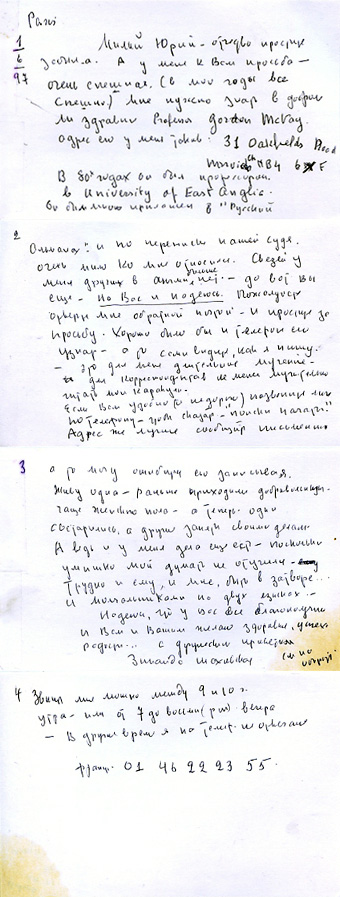 Paris
1
6
97
Милый Юрий - отчество простите
забыла. А у меня к Вам просьба -
очень спешная. (в мои годы все
спешно) Мне нужно знать в добром
ли здравии Professor Gordon McVay.
адрес его у меня такой: 31 Road
Norwich NR4
В 80х годах он был профессором
в University of East Anglia.
в "Русский
2
Альманах" и по переписке нашей судя
очень мило ко мне относился. Связей у
меня других в англии нет - до вот Вы
еще - на Вас и надеюсь. Пожалуйста
ответьте мне обратной почтой - и простите за
просьбу. Хорошо было бы и телефон его
узнать - а то сами видите, как я пишу.
- это для меня длительное мучение -
а для корреспондентов не менее мучительно
читать мои каракули.
Если Вам удобно (и недорого) позвоните мне
по телефону - чтобы сказать - "поиски начаты"
Адрес же лучше сообщить письменно
3
а то могу ошибиться его записывая.
Живу одна - раньше приходили добровольцы
чаще женского пола - а теперь одни
состарились, а другие заняты своими делами
А ведь и у меня дела еще есть - поскольку
умишко мой думать не отучили -
Трудно и ему, и мне, быть в затворе...
и молчальниками на двух языках -
Надеюсь, что у Вас все благополучно
и Вам и Вашим желаю здоровья, успеха
радости... с дружеским приветом
Зинаида Шаховская
см на
обороте
4 Звонить мне можно между 9 и 10 ч.
утра - или от 7 до восьми вечера
- В другое время я на телеф. не отвечаю
франц. 01 46 22 23 55.